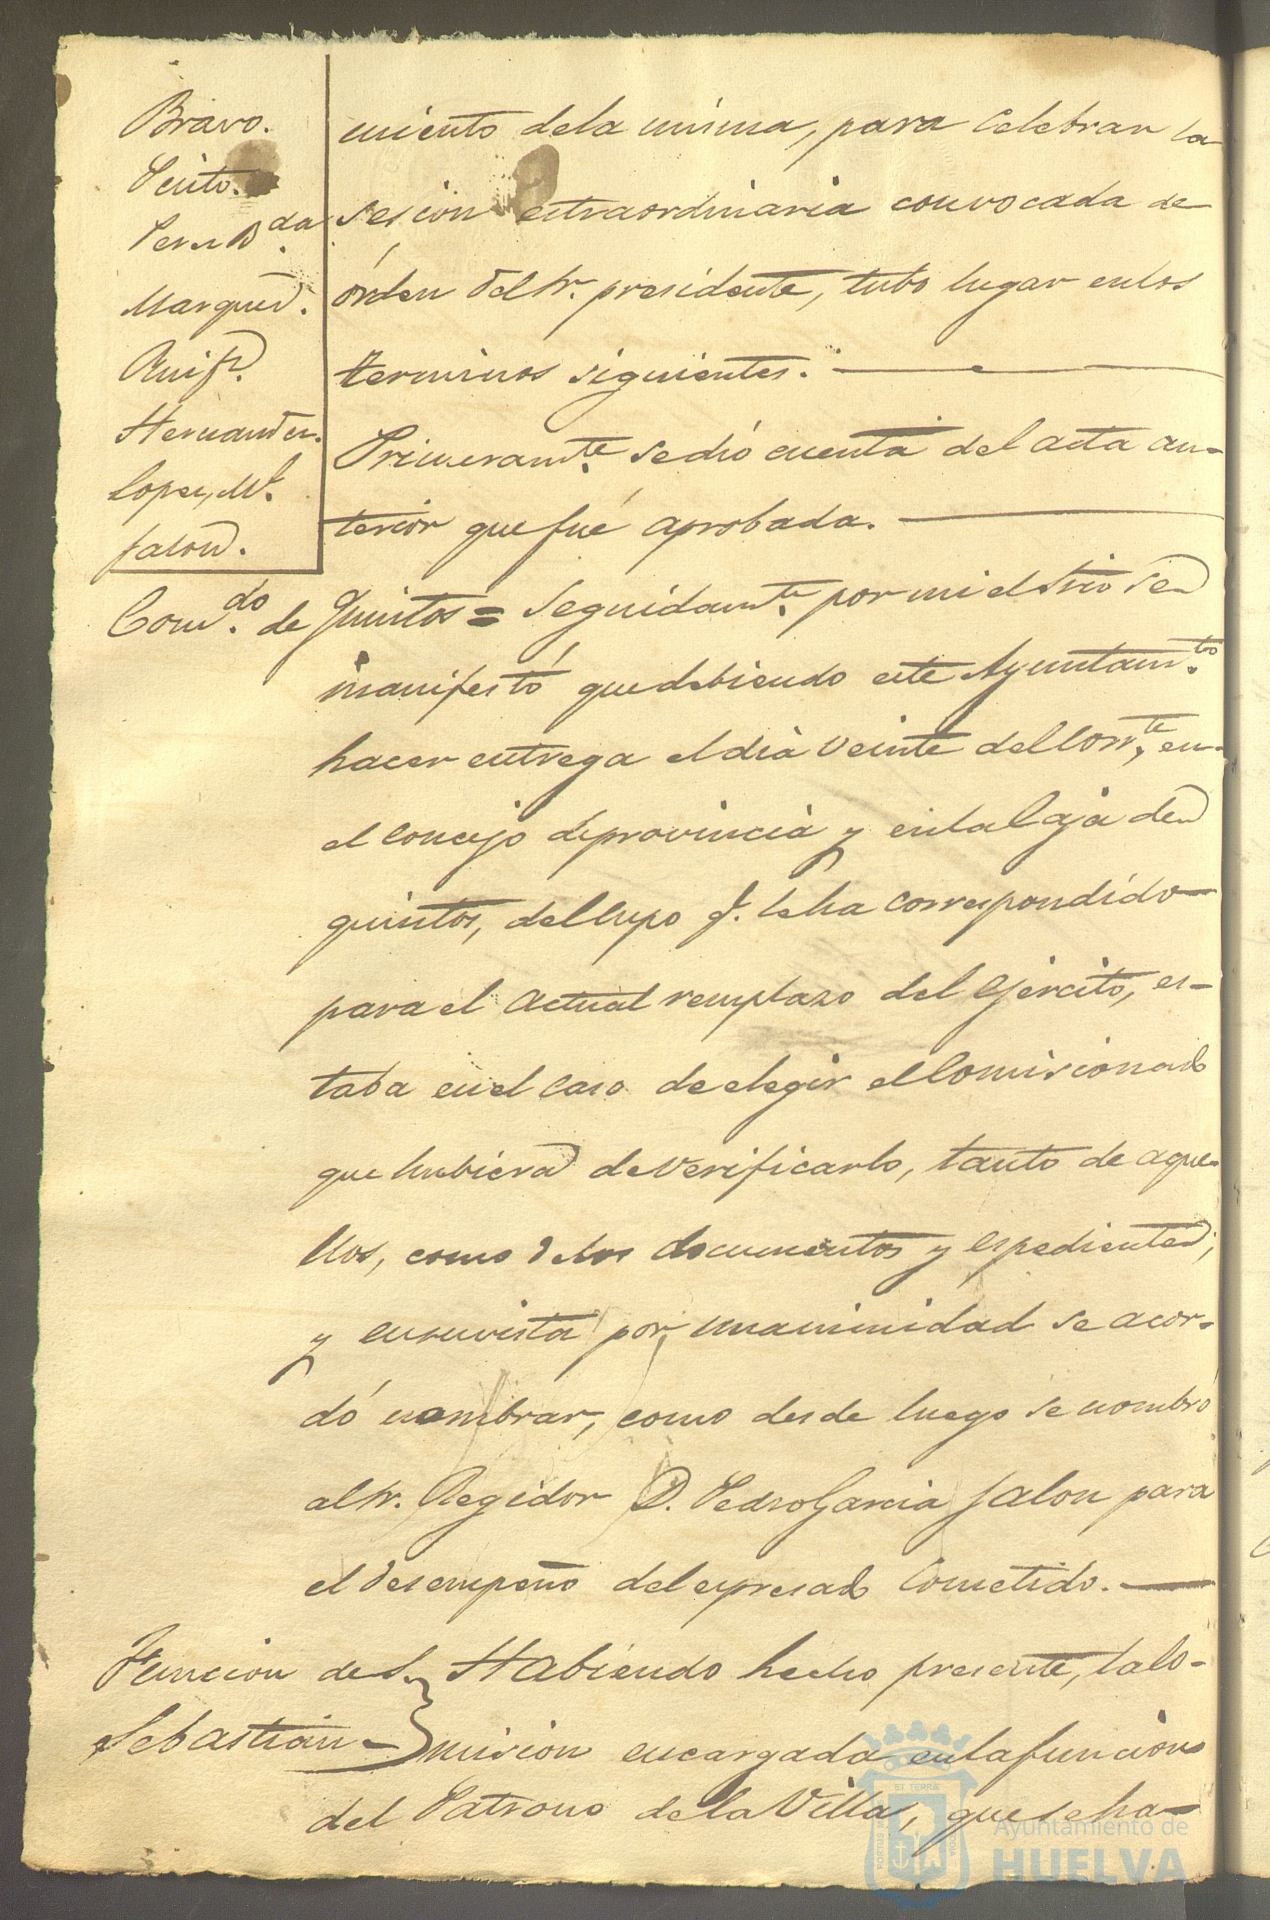 Bravo.
Pinto.
Marquez.
Hernandez.
Lopez, Ml.
Jalon.
miento dela misma, para celebrar la
sesion estraordinaria convocada de
órden del Sr. presidente, tubo lugar enlos
terminos siguientes.
Primeramte. sedió cuenta del acta an-
terior que fué aprobada.
Comdo. de Quintos = Seguidamte. por mi el Srio se
manifestó quedebiendo este Ayuntamto.
hacer entrega eldia veinte delCorrte., en
el concejo deprovincia y enlaCaja de
quintos, delcupo q. leha correspondido
para el actual remplazo del Ejército, es-
taba enel caso deelegir elComisionado
que hubiera deverificarlo, tanto de aque-
llos, como delos documentos y espedientes,
y ensuvista por unanimidad se acor-
dó nombrar, como desde luego se nombró
alSr. Regidor D. PedroGarcia Jalon para
el desempeño delespresado Cometido.
Funcion de S. Sebastian
Habiendo hecho presente, laCo-
mision encargada enlafuncion
del Patrono delaVilla, queseha-
Ayuntamiento de
HUELVA